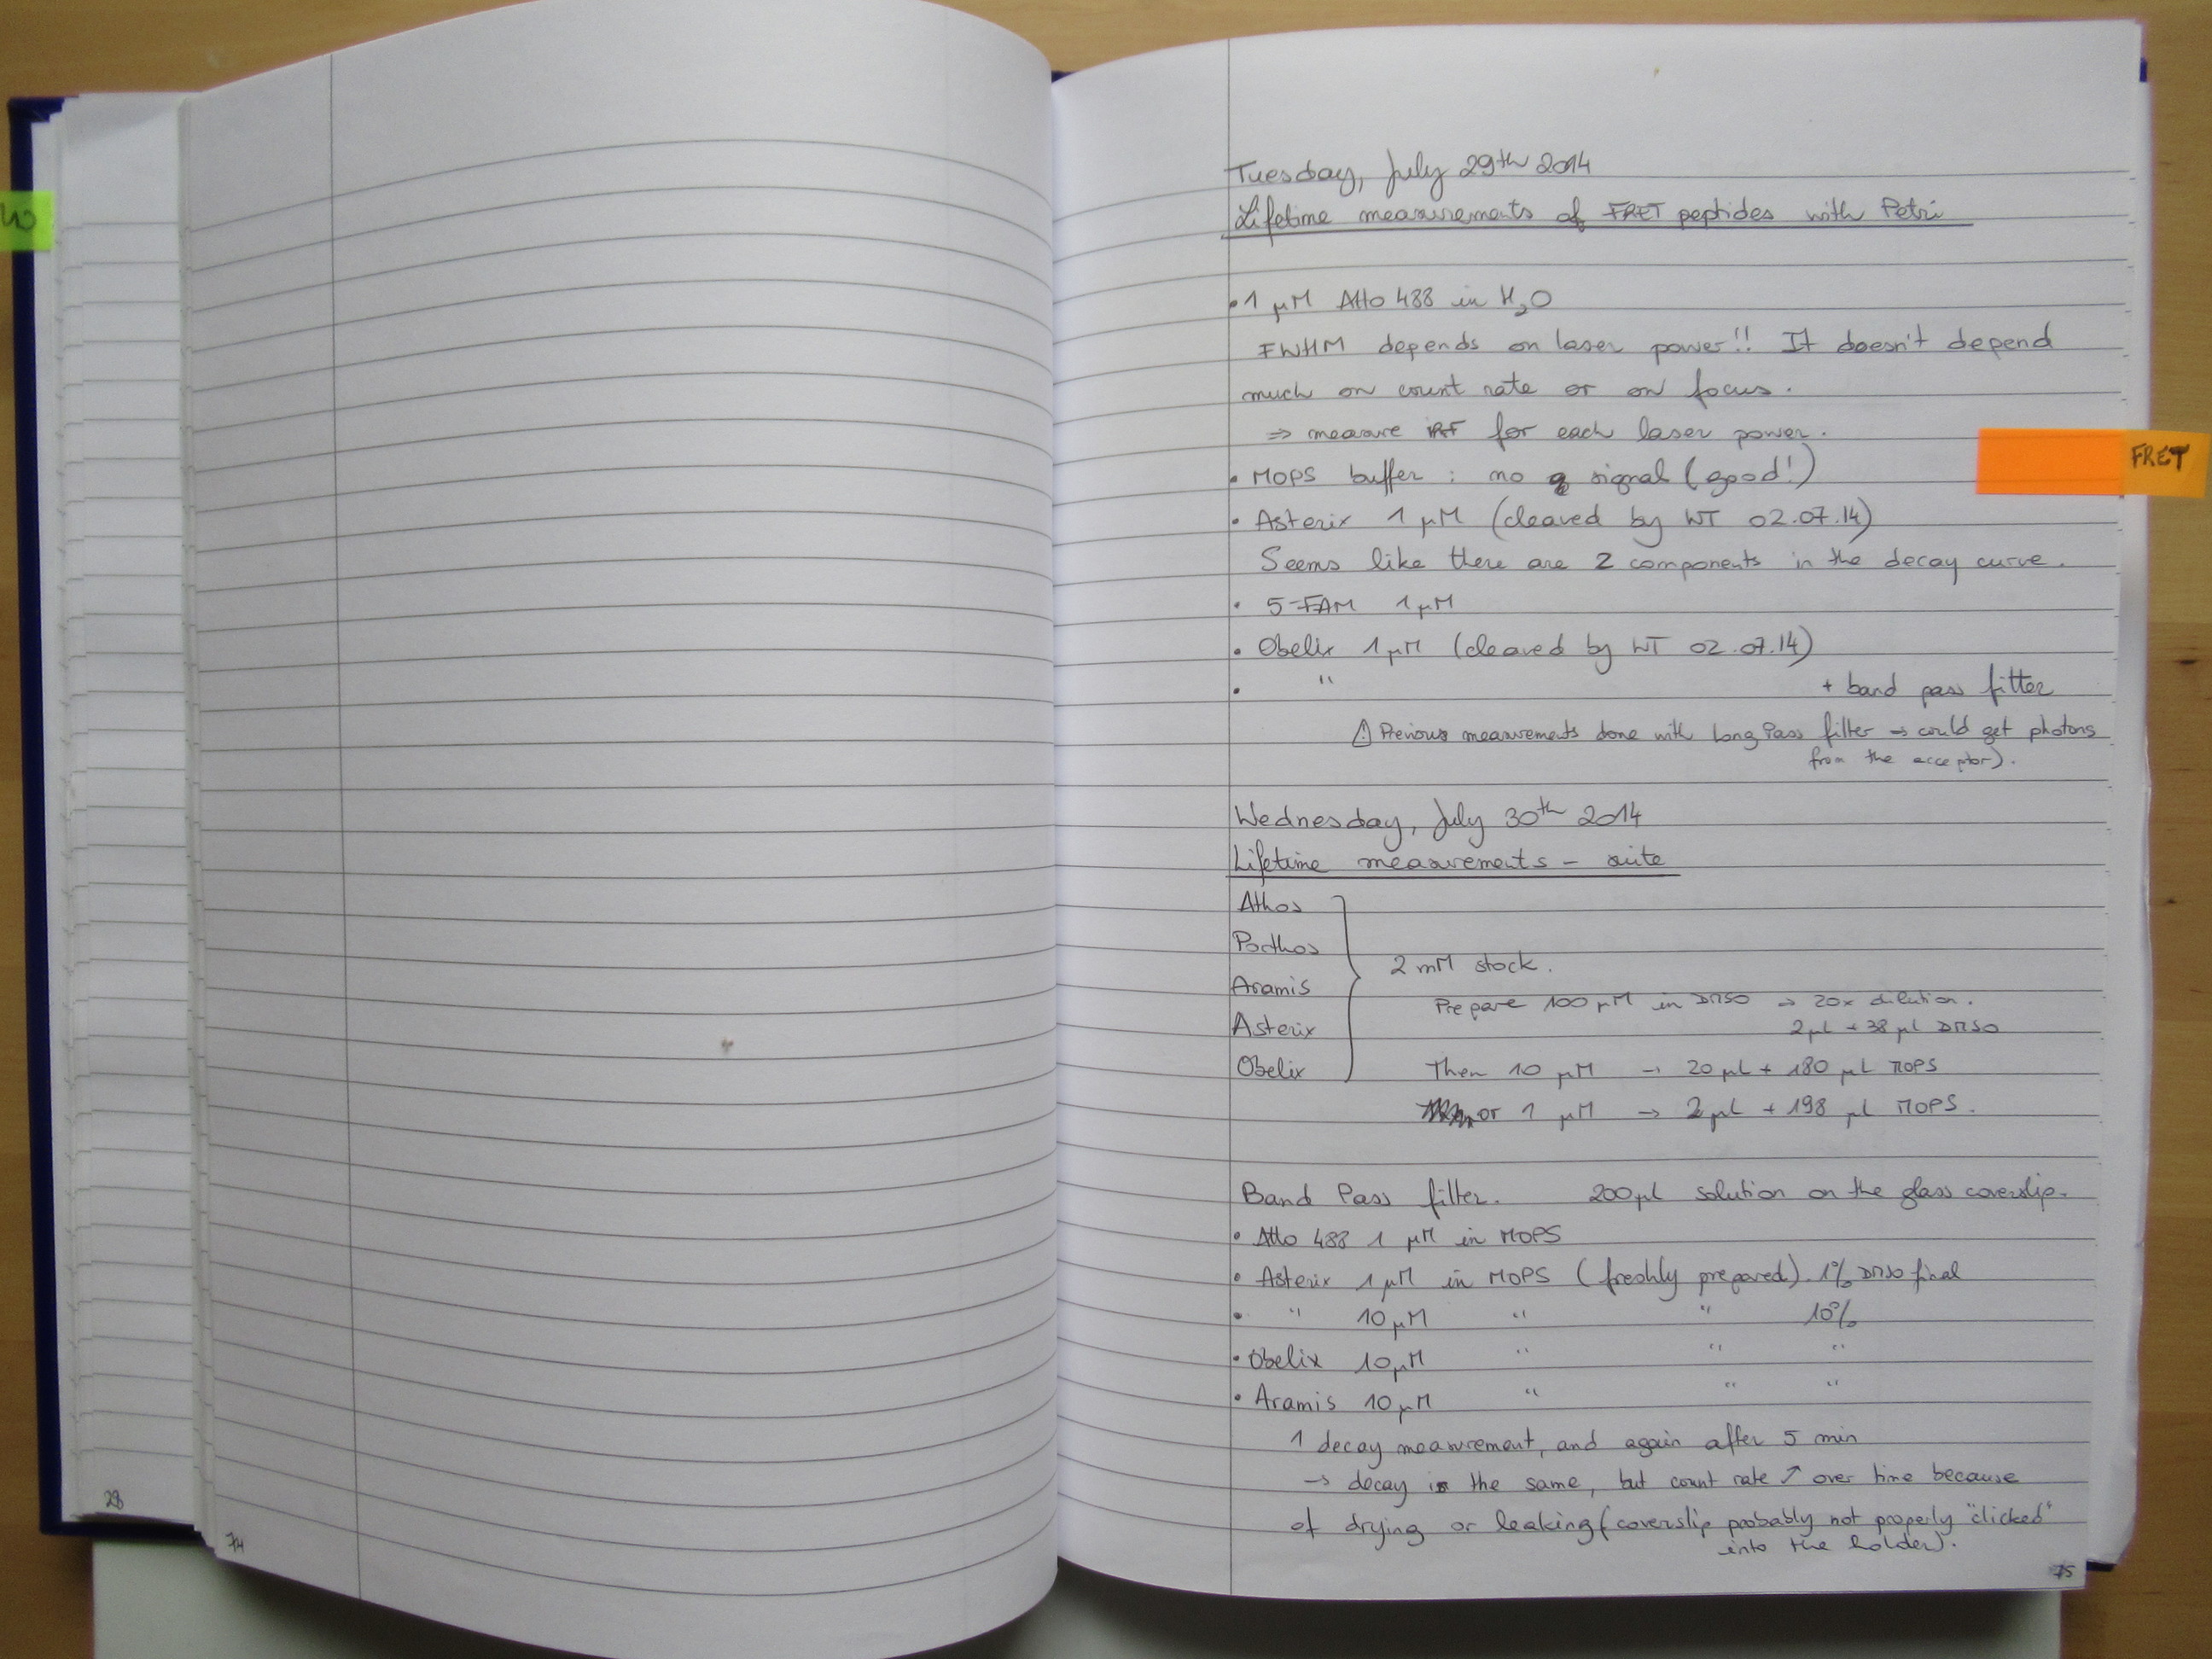 28
74
Tuesday, July 29th 2014
Lifetime measurements of FRET peptides with Petri
• 1 μM Atto 488 in H2O
FWHM depends on laser power!! It doesn't depend
much on count rate or on focus.
⇒ measure IRF for each laser power.
FRET
• MOPS buffer : no signal (good!)
• Asterix 1 μM (cleaved by WT 02.07.14)
Seems like there are 2 components in the decay curve.
• 5-FAM 1 μM
• Obelix 1 μM (cleaved by WT 02.07.14)
• " + band pass filter
⚠ Previous measurements done with Long Pass filter → could get photons
from the acceptor).
Wednesday, July 30th 2014
Lifetime measurements - suite
Athos
Porthos
2 mM stock.
Aramis
Prepare 100 μM in DMSO → 20x dilution.
Asterix
2 μL + 38 μL DMSO
Obelix
Then 10 μM → 20 μL + 180 μL MOPS
or 1 μM → 2 μL + 198 μL MOPS.
Band Pass filter. 200 μL solution on the glass coverslip.
• Atto 488 1 μM in MOPS
• Asterix 1 μM in MOPS (freshly prepared). 1% DMSO final
• " 10 μM " " 10%
• Obelix 10 μM " " "
• Aramis 10 μM " " "
1 decay measurement, and again after 5 min
→ decay is the same, but count rate ↗ over time because
of drying or leaking (coverslip probably not properly "clicked"
into the holder).
75